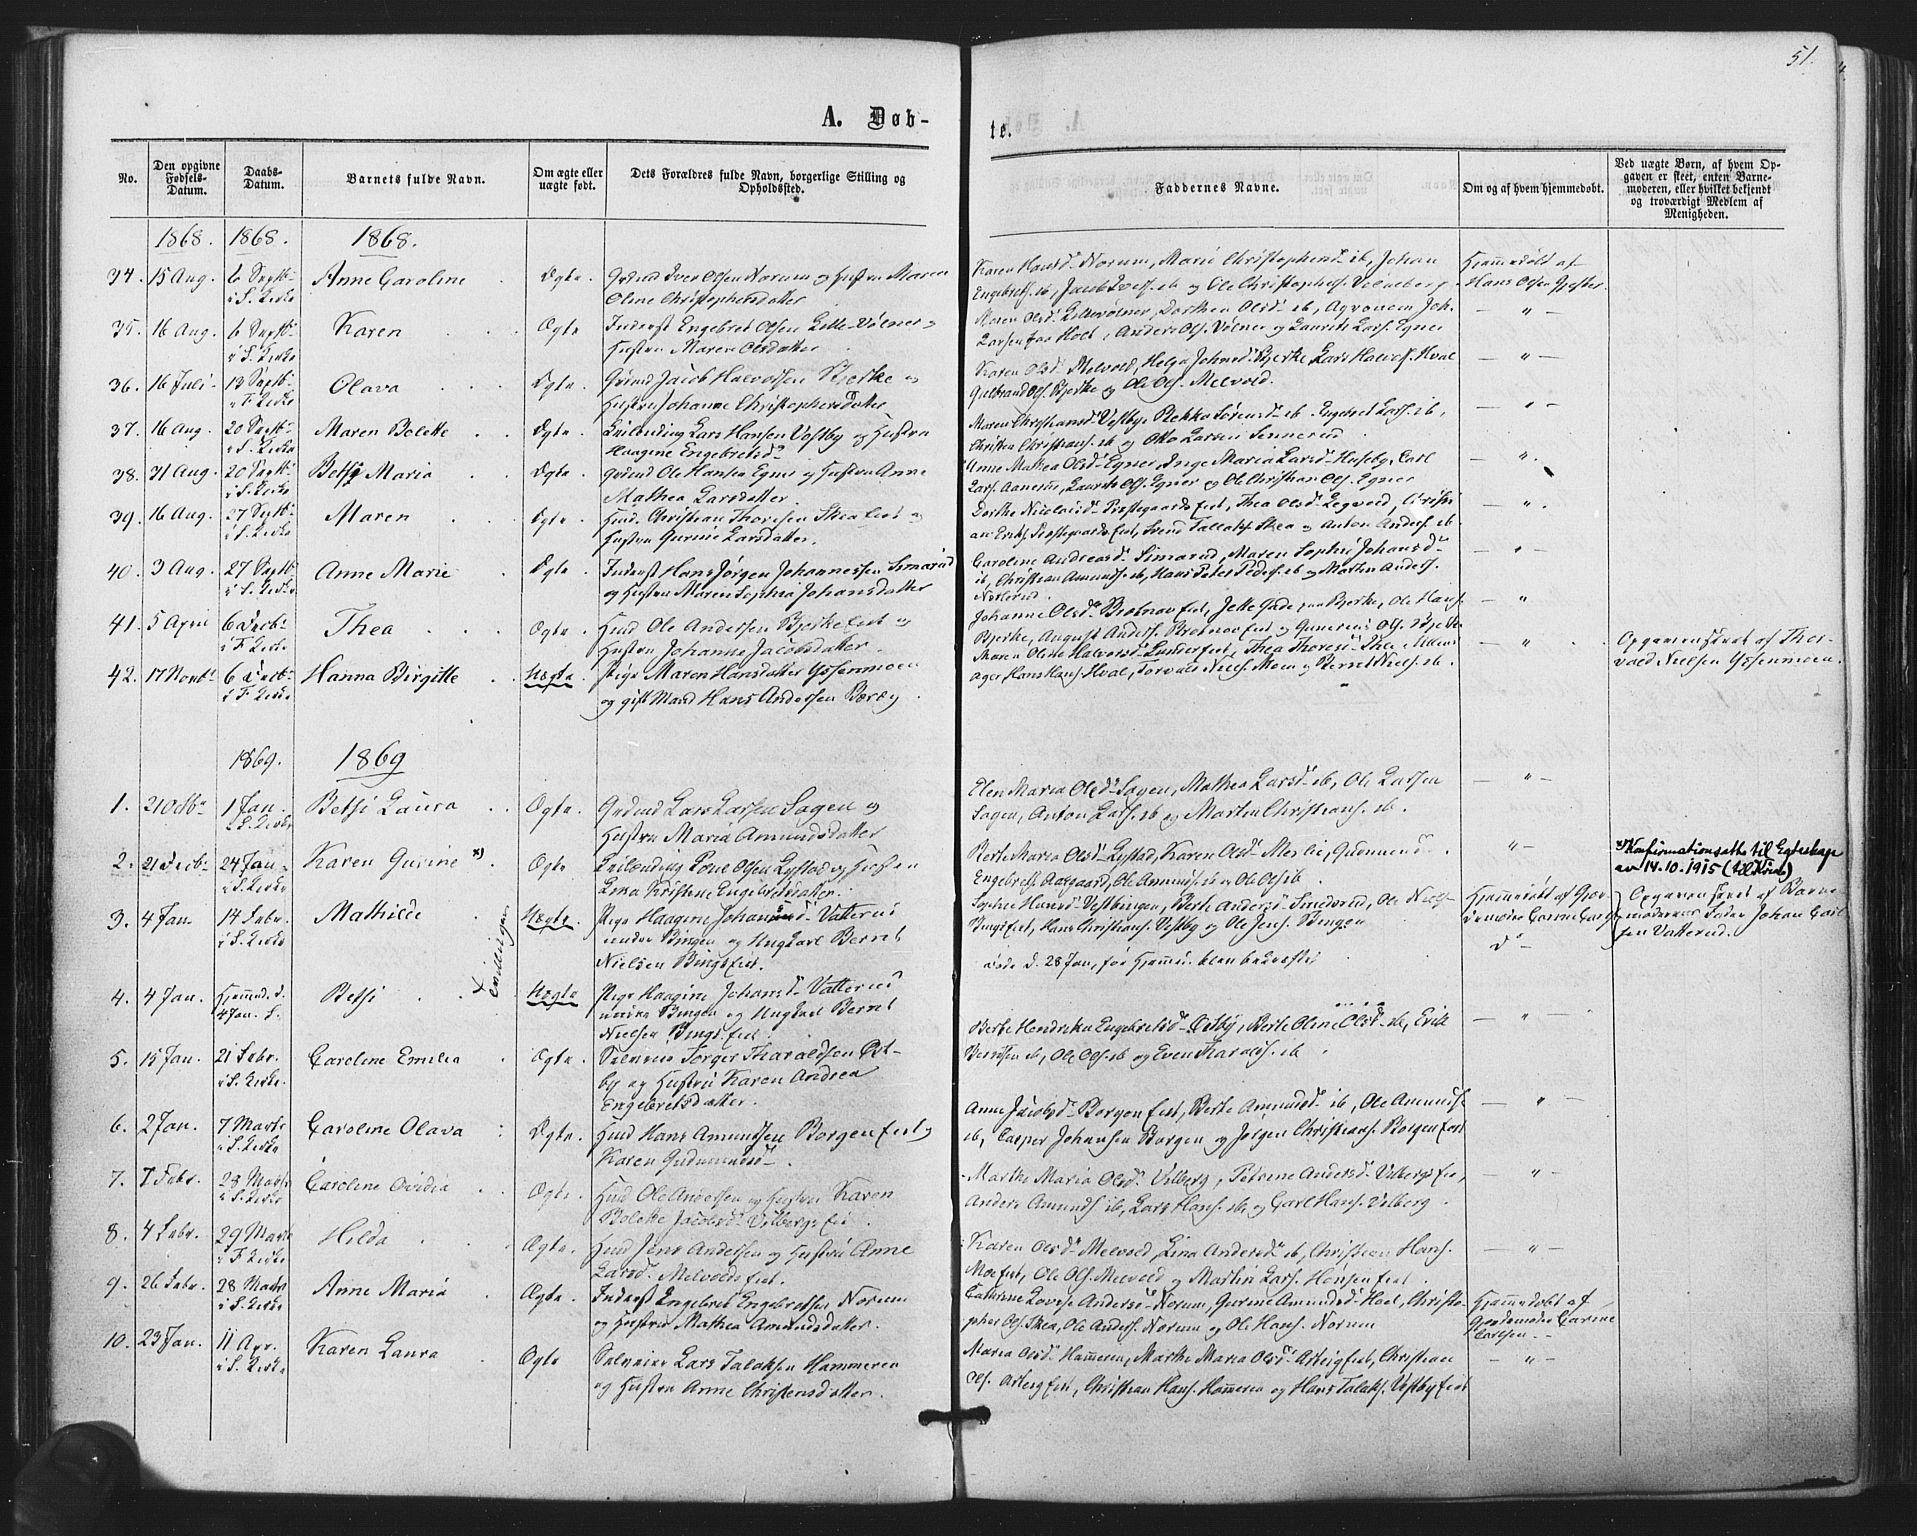 51.
A. Døb-
te.
No.
Den opgivne Fødsels-Datum.
Daabs-Datum.
Barnets fulde Navn.
Om ægte eller uægte født.
Dets Forældres fulde Navn, borgerlige Stilling og Opholdssted.
Faddernes Navne.
Om og af hvem hjemmedøbt.
Ved uægte Børn, af hvem Op-
gaven er skeet, enten Barne-
moderen, eller hvilket bekjendt
og troværdigt Medlem af
Menigheden.
1868. 1868. 1868.
34. 15 Aug. 6 Septb. Anne Caroline Ægte. Grdmd Iver Olsen Norum og Hustru Maren
i S. Kirke Oline Christophersdatter
Karen Hansd. Norum, Marie Christophersd. ib, Johan
Engebrets. ib, Jacob ib og Ole Christophers.
Hjemmedøbt af
Hans Olsen
35. 16 Aug. 6 Septb. Karen Ægte. Inderst Engebret Olsen Lille-Vølner og
i S. Kirke Hustru Maren Olsdatter
Maren Olsd. Lillevølner, Dorthea Olsd. ib,
Larsen Hoel, Anders Ols. Vølner og Laurits Lars. Egner
— " —
36. 16 Juli 13 Septb. Olava Ægte. Grdmd Jacob Halvorsen Bjerke og
i F. Kirke Hustru Johanne Christophersdatter
Karen Olsd. Melvold, Helga Johnsd. Bjerke, Lars Halvors. Hval
Gulbrand Ols. Bjerke og Ole Ols. Melvold.
— " —
37. 16 Aug. 20 Septb. Maren Bolette Ægte. Leilending Lars Hansen Vestby og Hustru
i S. Kirke Haagine Engebretsd.
Maren Christiansd. Vestby, Rekka Sørensd. ib, Engebret Lars. ib,
Christen Christians. ib og Otto Larsen Sennerud
— " —
38. 31 Aug. 20 Septb. Betsy Maria Ægte. Grdmd Ole Hansen Egner og Hustru Anne
i S. Kirke Mathea Larsdatter.
Anne Mathea Olsd. Egner, Inge Maria Larsd. Huseby, Carl
Lars. Aanerud, Laurits Ols. Egner og Ole Christian Ols. Egner
— " —
39. 16 Aug. 27 Septb. Maren Ægte. Husm. Christian Thoresen Skea Eiet og
i S. Kirke Hustru Gurine Larsdatter.
Dorthe Nicolaisd. Præstegaards Eiet, Thea Olsd. Legvold, Christi
an Eriks. Præstegaards Eiet, Svend Tallaks. Skea og Anton Anders. ib.
— " —
40. 3 Aug. 27 Septb. Anne Marie Ægte. Inderst Hans Jørgen Johannessen Simarud
i S. Kirke og Hustru Maren Sophia Johansdatter
Caroline Andreasd. Simarud, Maren Sophie Johansd.
ib, Christian Amunds. ib, Hans Peter Peders. ib og Martin Anders.
— " —
41. 5 April 6 Decb. Thea Ægte. Husm. Ole Andersen Bjerke Eiet og
i F. Kirke Hustru Johanne Jacobsdatter.
Johanne Olsd. Brotnov Eiet, Jette Gade paa Bjerke, Ole Hans.
Bjerke, August Anders. Brotnov Eiet og Gunerius Ols. Bjerke
— " —
42. 17 Novb. 6 Decb. Hanna Birgitte Uægte. Pige Maren Hansdatter Ussenmoen
i F. Kirke og gift Mand Hans Andersen Berg
Maren Oline Halvorsd. Lunder Eiet, Thea Thoresd.
ager, Hans Hans. Hval, Torvald Niels. Moen og Bernt Niels. ib.
— " —
Opgaven skeet af Thor-
vald Nielsen Ussenmoen
1869. 1869
1. 21 Oktb. 1 Jan. Betsi Laura Ægte. Grdmd Lars Larsen Sagen og
i S. Kirke Hustru Maria Amundsdatter
Elen Maria Olsd. Sagen, Mathea Larsd. ib, Ole Larsen
Sagen, Anton Lars. ib og Martin Christians. ib.
— " —
2. 21 Decb. 24 Jan. Karen Gurine *) Ægte. Leilending Tone Olsen Lystad og Hustru
i S. Kirke Lina Kristine Engebretsdatter.
Berte Maria Olsd. Lystad, Karen Olsd. Merlie, Gudmund
Engebrets. Aasgaard, Ole Amunds. ib og Ole Ols ib.
— " —
*) Konfirmationsatte til Egteskap
av 14.10.1915 (til Krim)
3. 4 Jan. 14 Febr. Mathilde Uægte. Pige Haagine Johansd. Vatterud
i S. Kirke under Bingen og Ungkarl Bernt
Nielsen Bings Eiet.
Tvillinger
Sophie Hansd. Vestbyengen, Berte Andersd. Smedsrud, Ole Niels.
Bings Eiet, Hans Christians. Vestby og Ole Jens. Bingen
døde d. 28 Jan, før Hjemmed. blev bekræftet
Hjemmedøbt af Gjor-
demoder Carine Carls
d.
Opgaven skeet af Barne-
moderens Fader Johan Carl-
sen Vatterud.
4. 4 Jan. Hjemmed. d. Betsi Uægte. Pige Haagine Johansd. Vatterud
4 Jan. S. under Bingen og Ungkarl Bernt
Nielsen Bings Eiet
— " —
5. 15 Jan. 21 Febr. Caroline Emilia Ægte. Selveier Torger Tharaldsen Øst-
i S. Kirke. by og Hustru Karen Andrea
Engebretsdatter.
Berthe Hendrikka Engebretsd. Østby, Berte Oline Olsd. ib, Erik
Berntsen ib, Ole Ols. ib og Even Tharalds. ib
6. 2 Jan. 7 Marts Caroline Olava Ægte. Husm. Hans Amundsen Borgen Eiet og
i S. Kirke Karen Gudmundsd.
Anne Jacobsd. Borgen Eiet, Berthe Amundsd. ib, Ole Amunds.
ib, Casper Johansen Borgen og Jørgen Christians. Borgen Eiet
— " —
7. 7 Febr. 28 Marts Caroline Ovidia Ægte. Husm. Ole Andersen og Hustru Karen
i S. Kirke Bolette Jacobsd. Vilbergs Eiet.
Marthe Maria Olsd. Vilberg, Petrine Andersd. Vilbergs Eiet,
Anders Amunds ib, Lars Hans. ib, og Carl Hans. Vilberg.
— " —
8. 4 Febr. 29 Marts Hilda Ægte. Husm. Jens Andersen og Hustru Anne
i F. Kirke Larsd. Melvolds Eiet.
Karen Olsd. Melvold, Lina Andersd. ib, Christian Hans.
Moe Eiet, Ole Ols. Melvold og Martin Lars. Hønsen Eiet.
— " —
9. 26 Febr. 28 Marts Anne Maria Ægte. Inderst Engebret Engebretsen Norum
i S. Kirke og Hustru Mathea Amundsdatter.
Cathrine Lovise Andersd. Norum, Gurine Amundsd. Hoel, Christo-
pher Ols. Skea, Ole Anders. Norum og Ole Hans. Norum
Hjemmedøbt af
Gjordemoder Carine
Carlsen
10. 23 Jan. 11 Apr. Karen Laura Ægte Selveier Lars Talaksen Hammeren
i S. Kirke og Hustru Anne Christensdatter.
Maria Olsd. Hammeren, Marthe Maria Olsd. Asteig Eiet, Christian
Ols. Asteig Eiet, Christian Hans. Hammeren og Hans Talaks. Vestby Eiet
— " —